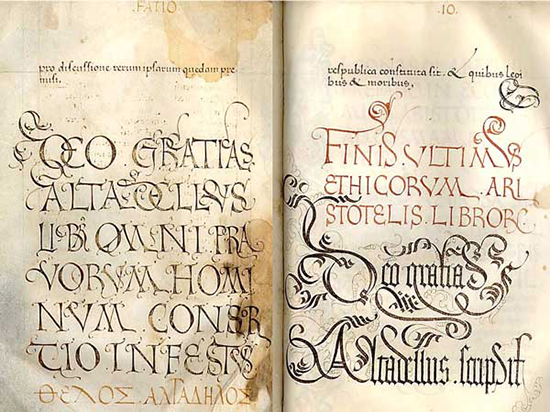 .FATIO.
pro discussione rerum ipsarum quedam pre
misi.
DEO GRATIAS.
ALTADELLVS
OMNI PRA
VORVM HOMI
NVM
TIO INFESTVS
.10.
respublica constituta sit. & quibus legi
bus & moribus.
FINIS VLTIMVS
ETHICORVM ARI
STOTELIS
Deo gratias
Altadellus scripsit